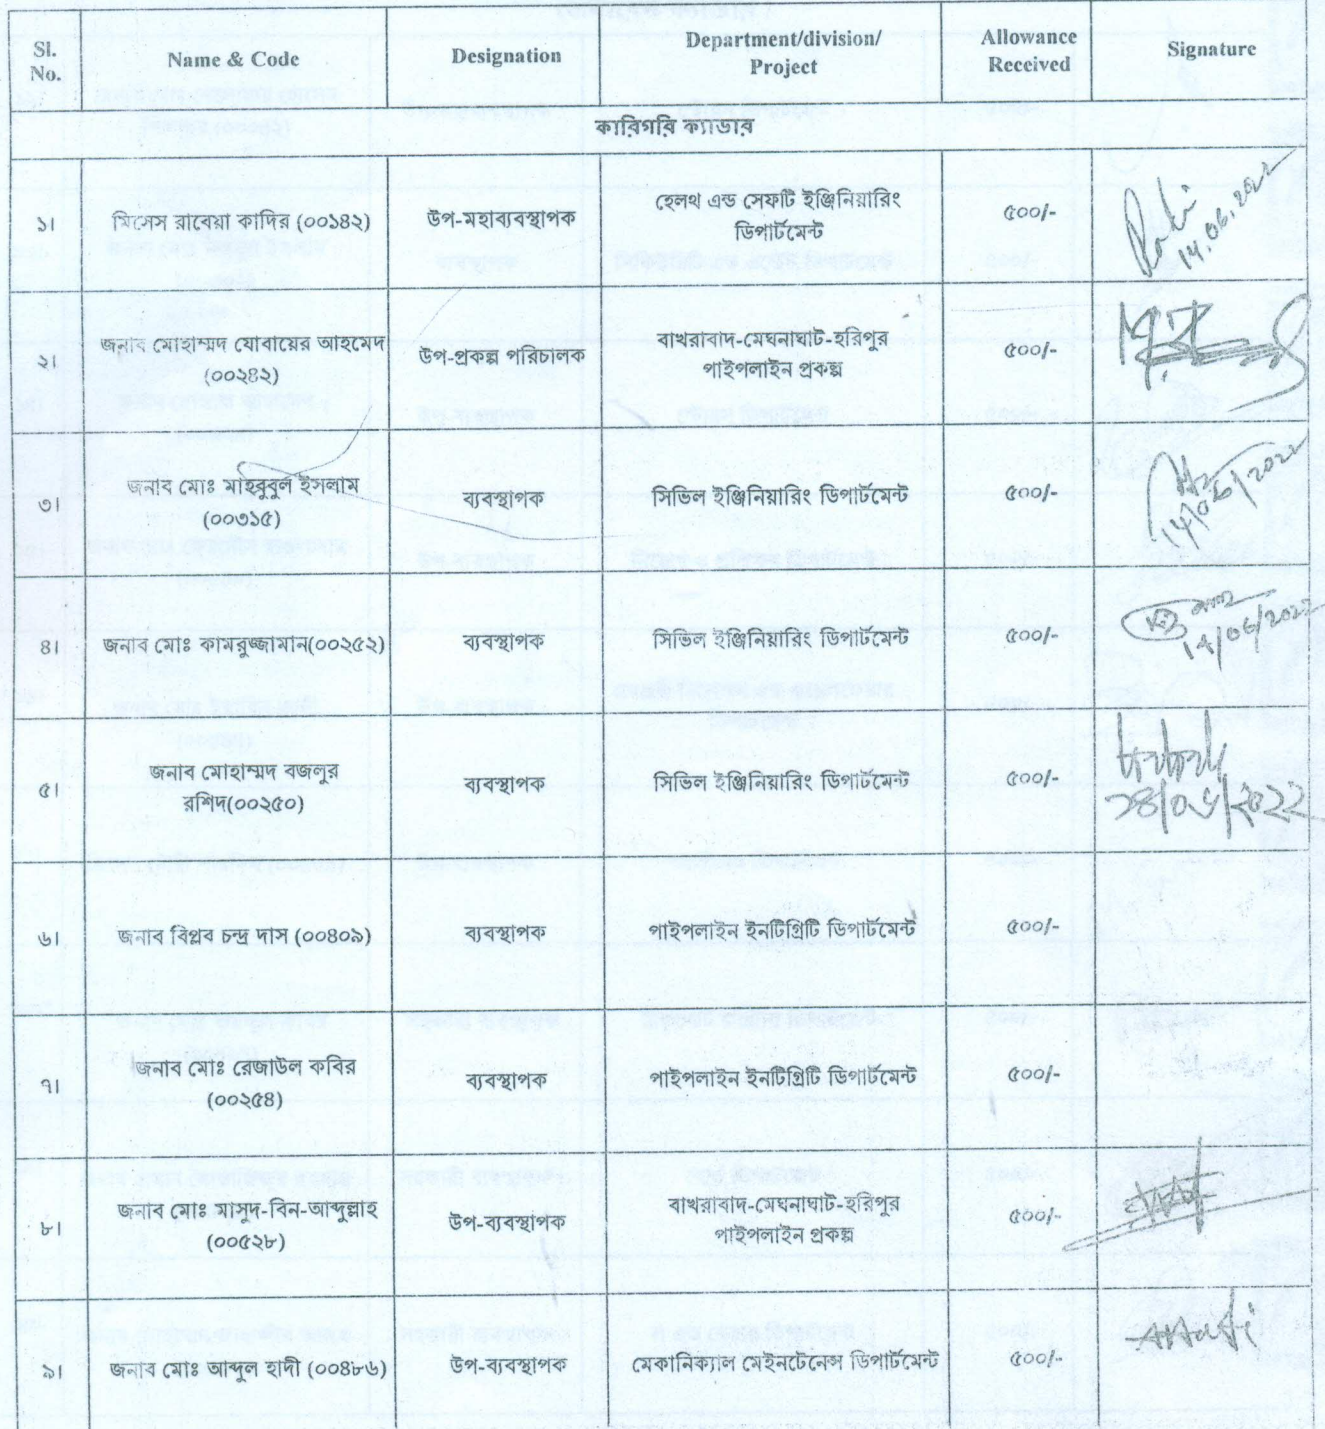 Sl. No. Name & Code Designation Department/division/ Project Allowance Received Signature
কারিগরি ক্যাডার
১। মিসেস রাবেয়া কাদির (০০১৪২) উপ-মহাব্যবস্থাপক হেলথ এন্ড সেফটি ইঞ্জিনিয়ারিং ডিপার্টমেন্ট ৫০০/- 14.06.2022
২। জনাব মোহাম্মদ যোবায়ের আহমেদ (০০২৪২) উপ-প্রকল্প পরিচালক বাখরাবাদ-মেঘনাঘাট-হরিপুর পাইপলাইন প্রকল্প ৫০০/-
৩। জনাব মোঃ মাহবুবুল ইসলাম (০০৩১৫) ব্যবস্থাপক সিভিল ইঞ্জিনিয়ারিং ডিপার্টমেন্ট ৫০০/- 14/06/2022
৪। জনাব মোঃ কামরুজ্জামান(০০২৫২) ব্যবস্থাপক সিভিল ইঞ্জিনিয়ারিং ডিপার্টমেন্ট ৫০০/- 14/06/2022
৫। জনাব মোহাম্মদ বজলুর রশিদ(০০২৫০) ব্যবস্থাপক সিভিল ইঞ্জিনিয়ারিং ডিপার্টমেন্ট ৫০০/- ১৪/০৬/২০২২
৬। জনাব বিপ্লব চন্দ্র দাস (০০৪০৯) ব্যবস্থাপক পাইপলাইন ইনটিগ্রিটি ডিপার্টমেন্ট ৫০০/-
৭। জনাব মোঃ রেজাউল কবির (০০২৫৪) ব্যবস্থাপক পাইপলাইন ইনটিগ্রিটি ডিপার্টমেন্ট ৫০০/-
৮। জনাব মোঃ মাসুদ-বিন-আব্দুল্লাহ (০০৫২৮) উপ-ব্যবস্থাপক বাখরাবাদ-মেঘনাঘাট-হরিপুর পাইপলাইন প্রকল্প ৫০০/-
৯। জনাব মোঃ আব্দুল হাদী (০০৪৮৬) উপ-ব্যবস্থাপক মেকানিক্যাল মেইনটেনেন্স ডিপার্টমেন্ট ৫০০/-